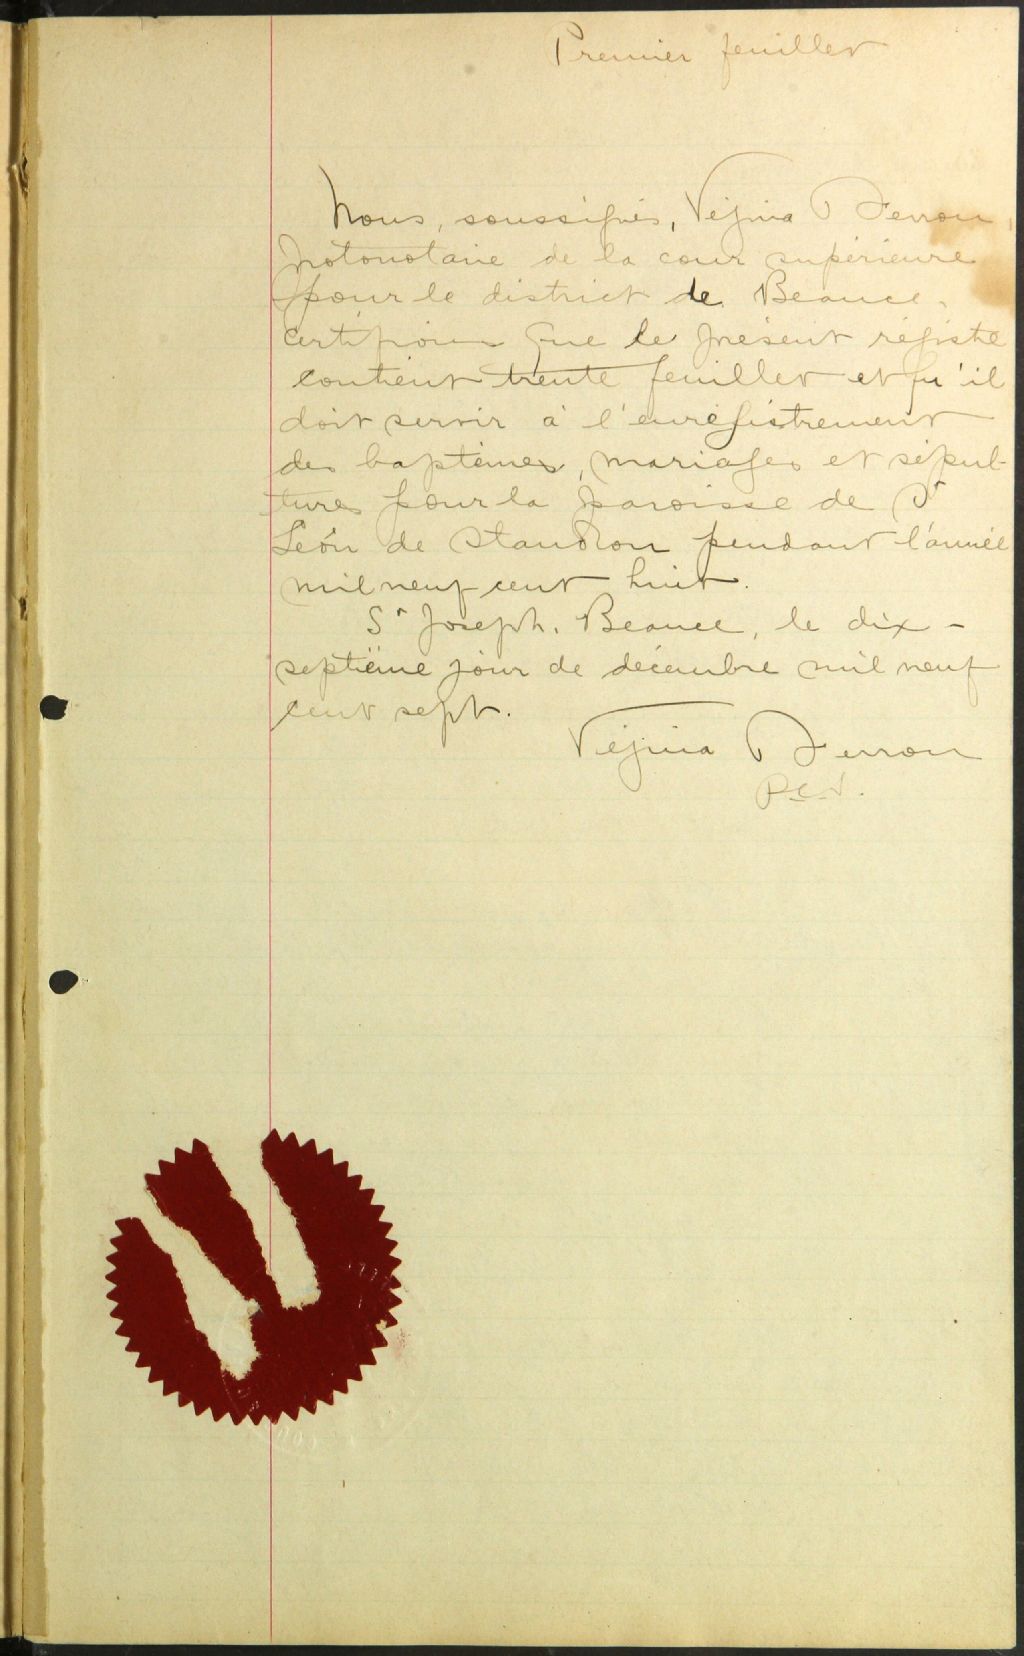 Premier feuillet
Nous, soussignés, Vézina & Ferron
Protonotaire de la cour supérieure
pour le district de Beauce,
certifions que le présent régistre
contient trente feuillet et qu'il
doit servir à l'enregistrement
des baptêmes, mariages et sépul-
tures pour la paroisse de St
Léon de Standon pendant l'année
mil neuf cent huit.
St Joseph, Beauce, le dix-
septième jour de décembre mil neuf
cent sept.
Vézina & Ferron
P.C.S.